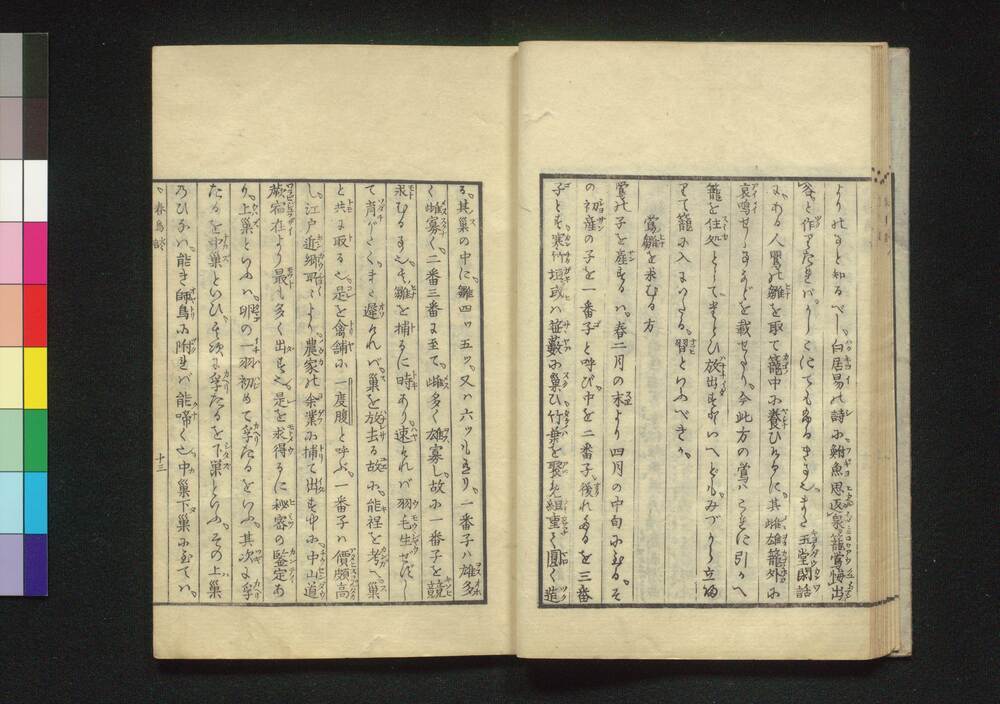 よりのことゝ知るべし。白居易の詩に鮒魚思返泉籠鶯悔出
谷と作りたれバ。かしこにてもあるまじ。また玉堂閑話
に。ある人鶯の雛を取て籠中に養ひけるに。其雌雄籠外に
哀鳴せしまうどを載せたり。今此方の鶯ハこゝに引かへ
籠を住処として。まどひ放出すといへども。みづから立帰
りて籠に入にいたる。習といふべきか。
鶯雛を求むる方
鶯の子を産するハ。春二月の末より四月の中旬にいたる。そ
の初産の子を一番子と呼び。中を二番子。後れたるを三番
子とす。寒竹垣或ハ笹藪に巣ひ。竹葉を聚め組重て円く造
る。其巣の中に雛四ツ五ツ。又ハ六ツもあり。一番子ハ雄多
く雌寡く。二番三番に至て。雌多く雄寡し。故に一番子を競
求むることぞ。雛を捕るに時あり。速けれバ羽毛生ぜずし
て育がたく。また遅けれバ。巣を放去る故に。能程を考へ。巣
と共に取る也。是を禽舗に一度腹と呼ぶ。一番子ハ價頗高
し。江戸近郷所々より。農家の余業に捕て出す中に。中山道
蕨宿在より最も多く出す也。是を求得るに秘密の鑑定あ
り。上巣といふハ。卵の一羽初めて孚たるをいふ。其次に孚
たるを中巣といひ。末に孚たるを下巣といふ。その上巣
のひなハ。能き師鳥に附れバ能啼く也。中巣下巣に至てハ。
春鳥談
十三